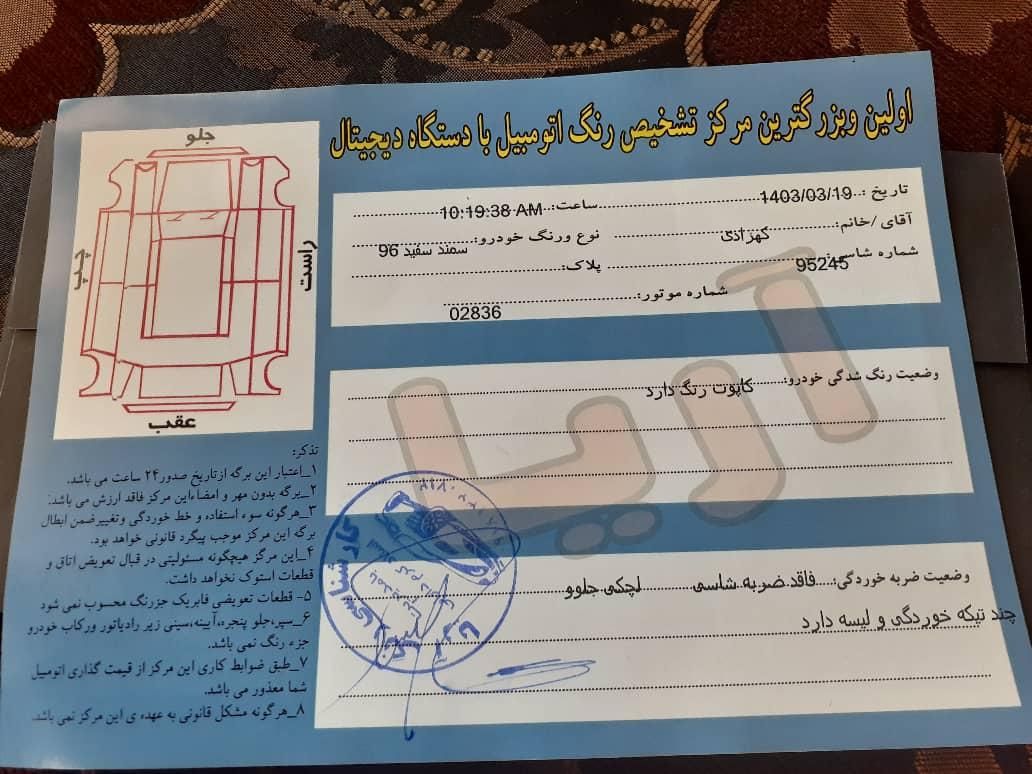 اولین وبزرگترین مرکز تشخیص رنگ اتومبیل با دستگاه دیجیتال
جلو
چپ
راست
عقب
تاریخ :..1403/03/19 ساعت:..10:19:38 AM
آقای /خانم:.. کهزادی نوع ورنگ خودرو:.. سمند سفید 96
شماره شاسی:.. 95245 پلاک:..
شماره موتور:.. 02836
آریا
وضعیت رنگ شدگی خودرو:.. کاپوت رنگ دارد
وضعیت ضربه خوردگی:.. فاقد ضربه شاسی لچکی جلوو
چند تیکه خوردگی و لیسه دارد
تذکر:
۱_اعتبار این برگه ازتاریخ صدور۲۴ ساعت می باشد.
۲_برگه بدون مهر و امضاءاین مرکز فاقد ارزش می باشد.
۳_هرگونه سوء استفاده و خط خوردگی وتغییرضمن ابطال
برگه این مرکز موجب پیگرد قانونی خواهد بود.
۴_این مرکز هیچگونه مسئولیتی در قبال تعویض اتاق و
قطعات استوک نخواهد داشت.
۵- قطعات تعویضی فابریک جزرنگ محسوب نمی شود
۶_سپر،جلو پنجره،آیینه،سینی زیر رادیاتور ورکاب خودرو
جزء رنگ نمی باشد.
۷_طبق ضوابط کاری این مرکز از قیمت گذاری اتومبیل
شما معذور می باشد.
۸_هرگونه مشکل قانونی به عهده ی این مرکز نمی باشد.
کارشناسی رنگ آریا